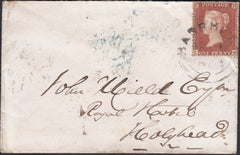 POSTAGE
ONE PENNY
John Mield Esqr
Royal Hotel
Holyhead